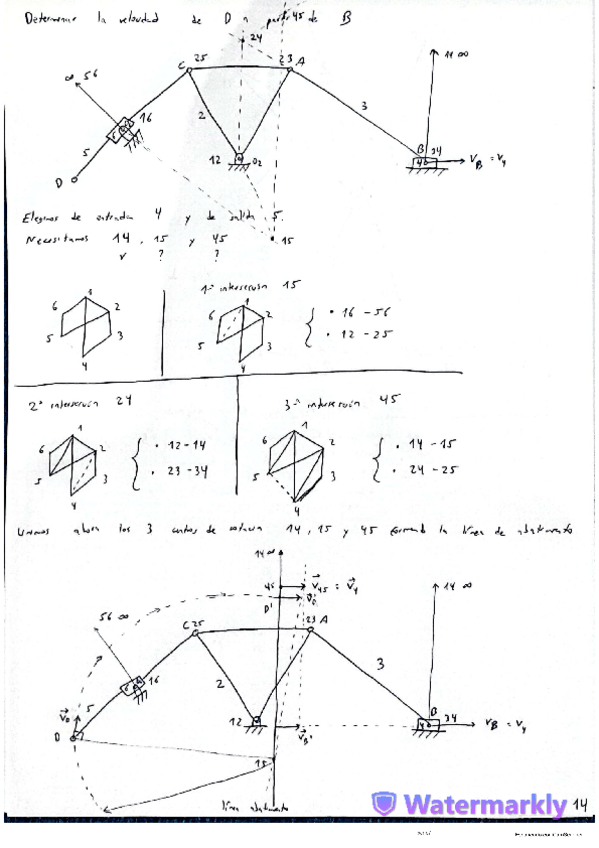 Determinar la velocidad de D a partir de B
45
24
∞ 56
C 25
23 A
11 ∞
16
2
3
5
12 O2
B 34
4
V_B = V_4
D
Elegimos de entrada 4 y de salida 5.
Necesitamos 14, 15 y 45
15
√ ? ?
1ª intersección 15
1
6 2
5 3
4
1
6 2
5 3
4
• 16 - 56
• 12 - 25
2ª intersección 24
3ª intersección 45
1
6 2
5 3
4
• 12 - 14
• 23 - 34
1
6 2
5 3
4
• 14 - 15
• 24 - 25
Unimos ahora los 3 centros de 14, 15 y 45 formando la línea de abatimiento
14 ∞
45 V_45 = V_4
D' V_D'
56 ∞
C 25
23 A
14 ∞
16
2
3
5
V_D
D
12
V_B'
B 34
V_B = V_4
15
línea abatimiento
Watermarkly
14